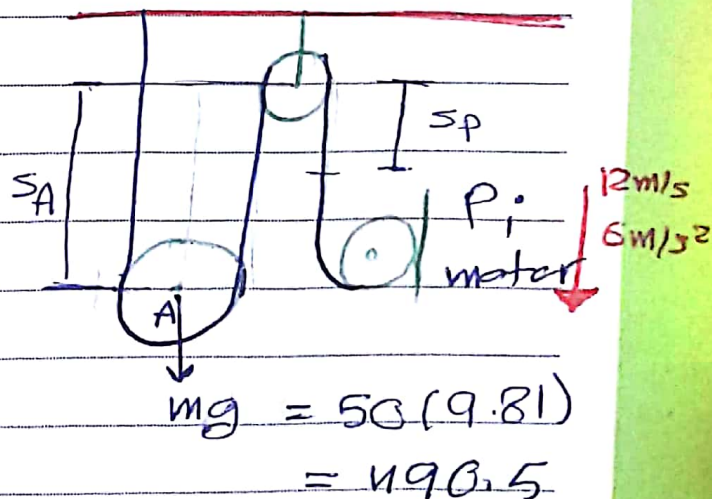 S_A
S_P
P;
motor
12m/s
6m/s²
A
mg = 50(9.81)
= 490.5